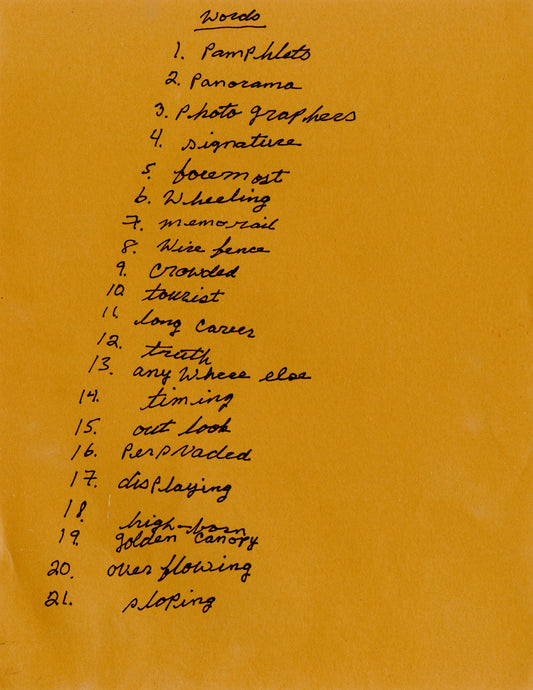 Words
1. Pamphlets
2. Panorama
3. Photo graphers
4. signature
5. foremost
6. Wheeling
7. memorail
8. Wire fence
9. Crowded
10. tourist
11. long Career
12. truth
13. any Where else
14. timing
15. out look
16. Perpvaded
17. displaying
18. high-born
19. golden Canopy
20. over flowing
21. sloping